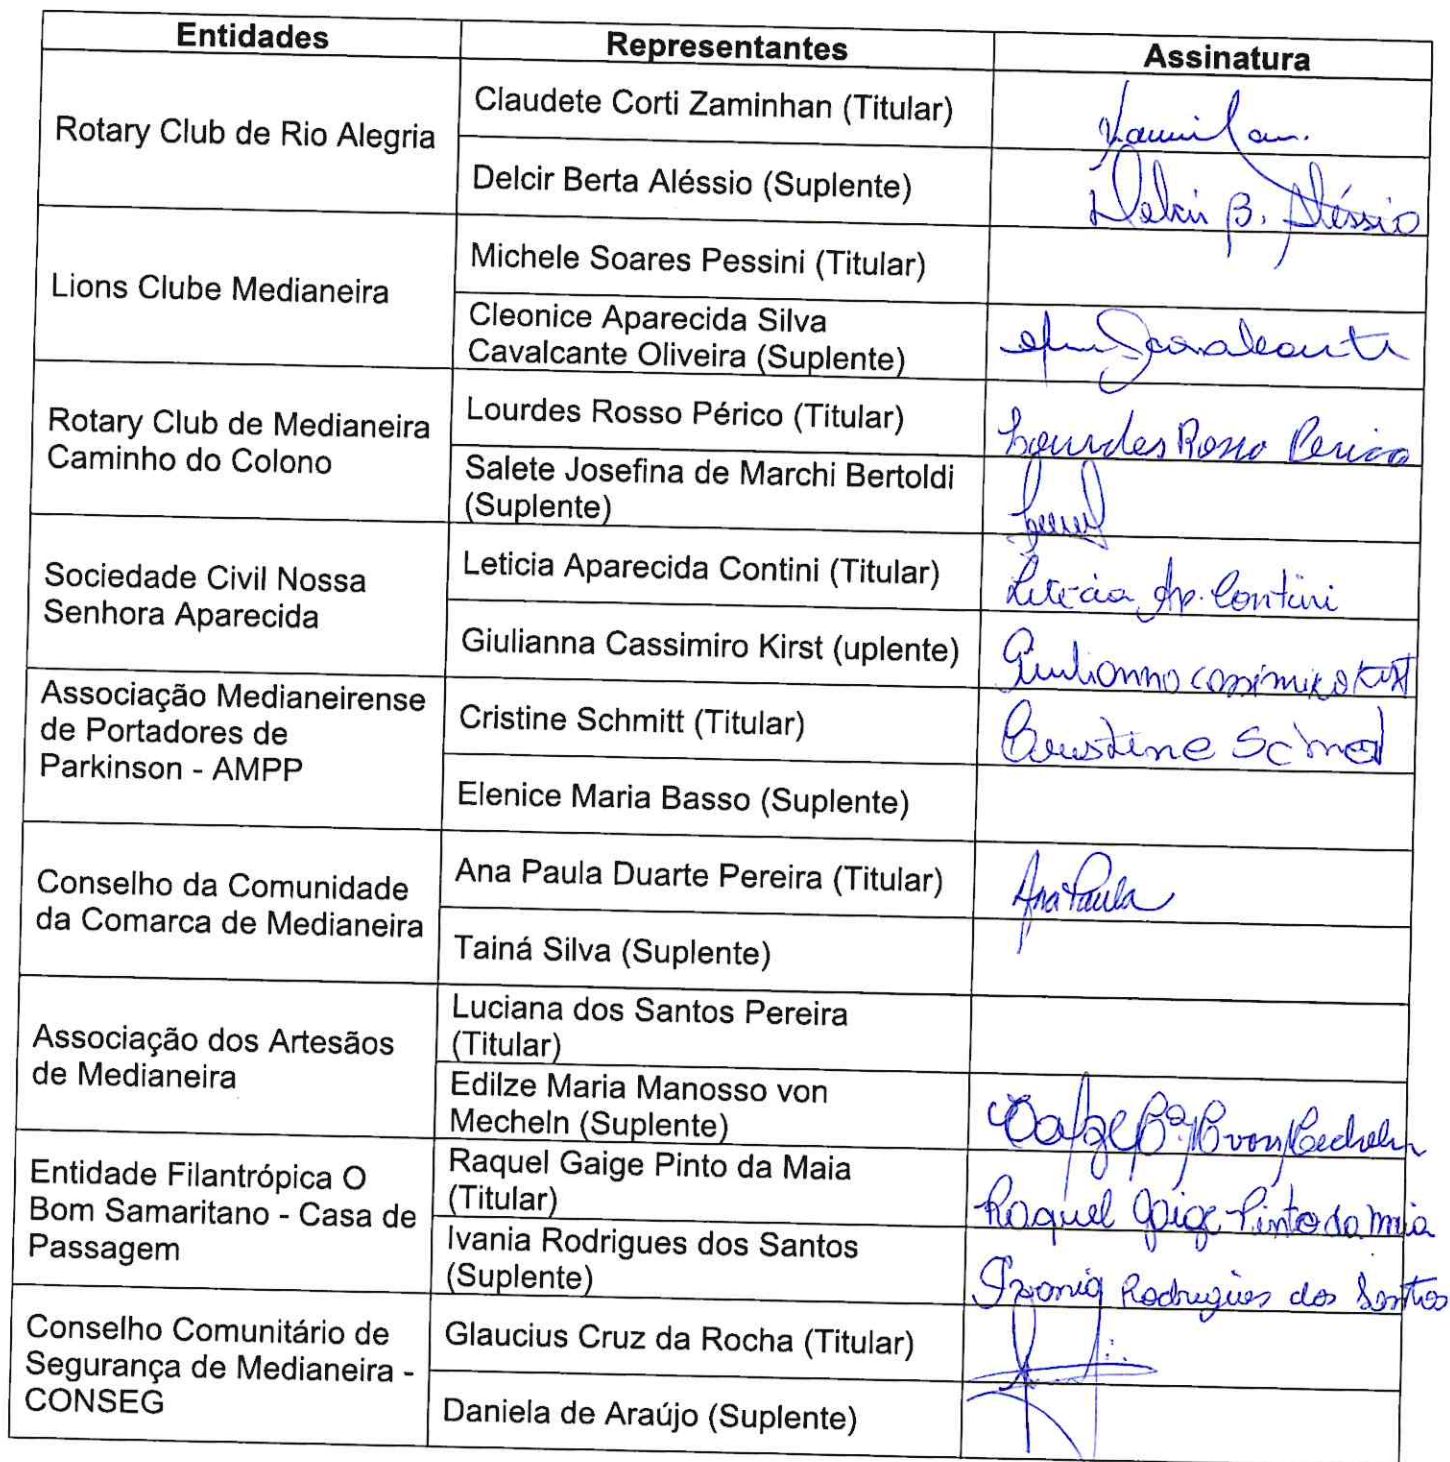 Entidades Representantes Assinatura
Rotary Club de Rio Alegria
Claudete Corti Zaminhan (Titular)
Delcir Berta Aléssio (Suplente)
Delcir B. Aléssio
Lions Clube Medianeira
Michele Soares Pessini (Titular)
Cleonice Aparecida Silva
Cavalcante Oliveira (Suplente)
Rotary Club de Medianeira
Caminho do Colono
Lourdes Rosso Périco (Titular)
Lourdes Rosso Perico
Salete Josefina de Marchi Bertoldi
(Suplente)
Sociedade Civil Nossa
Senhora Aparecida
Leticia Aparecida Contini (Titular)
Leticia Ap. Contini
Giulianna Cassimiro Kirst (uplente)
Giulianna cassimiro Kirst
Associação Medianeirense
de Portadores de
Parkinson - AMPP
Cristine Schmitt (Titular)
Elenice Maria Basso (Suplente)
Conselho da Comunidade
da Comarca de Medianeira
Ana Paula Duarte Pereira (Titular)
Ana Paula
Tainá Silva (Suplente)
Associação dos Artesãos
de Medianeira
Luciana dos Santos Pereira
(Titular)
Edilze Maria Manosso von
Mecheln (Suplente)
von Mecheln
Entidade Filantrópica O
Bom Samaritano - Casa de
Passagem
Raquel Gaige Pinto da Maia
(Titular)
Raquel Gaige Pinto da Maia
Ivania Rodrigues dos Santos
(Suplente)
Ivania Rodrigues dos Santos
Conselho Comunitário de
Segurança de Medianeira -
CONSEG
Glaucius Cruz da Rocha (Titular)
Daniela de Araújo (Suplente)